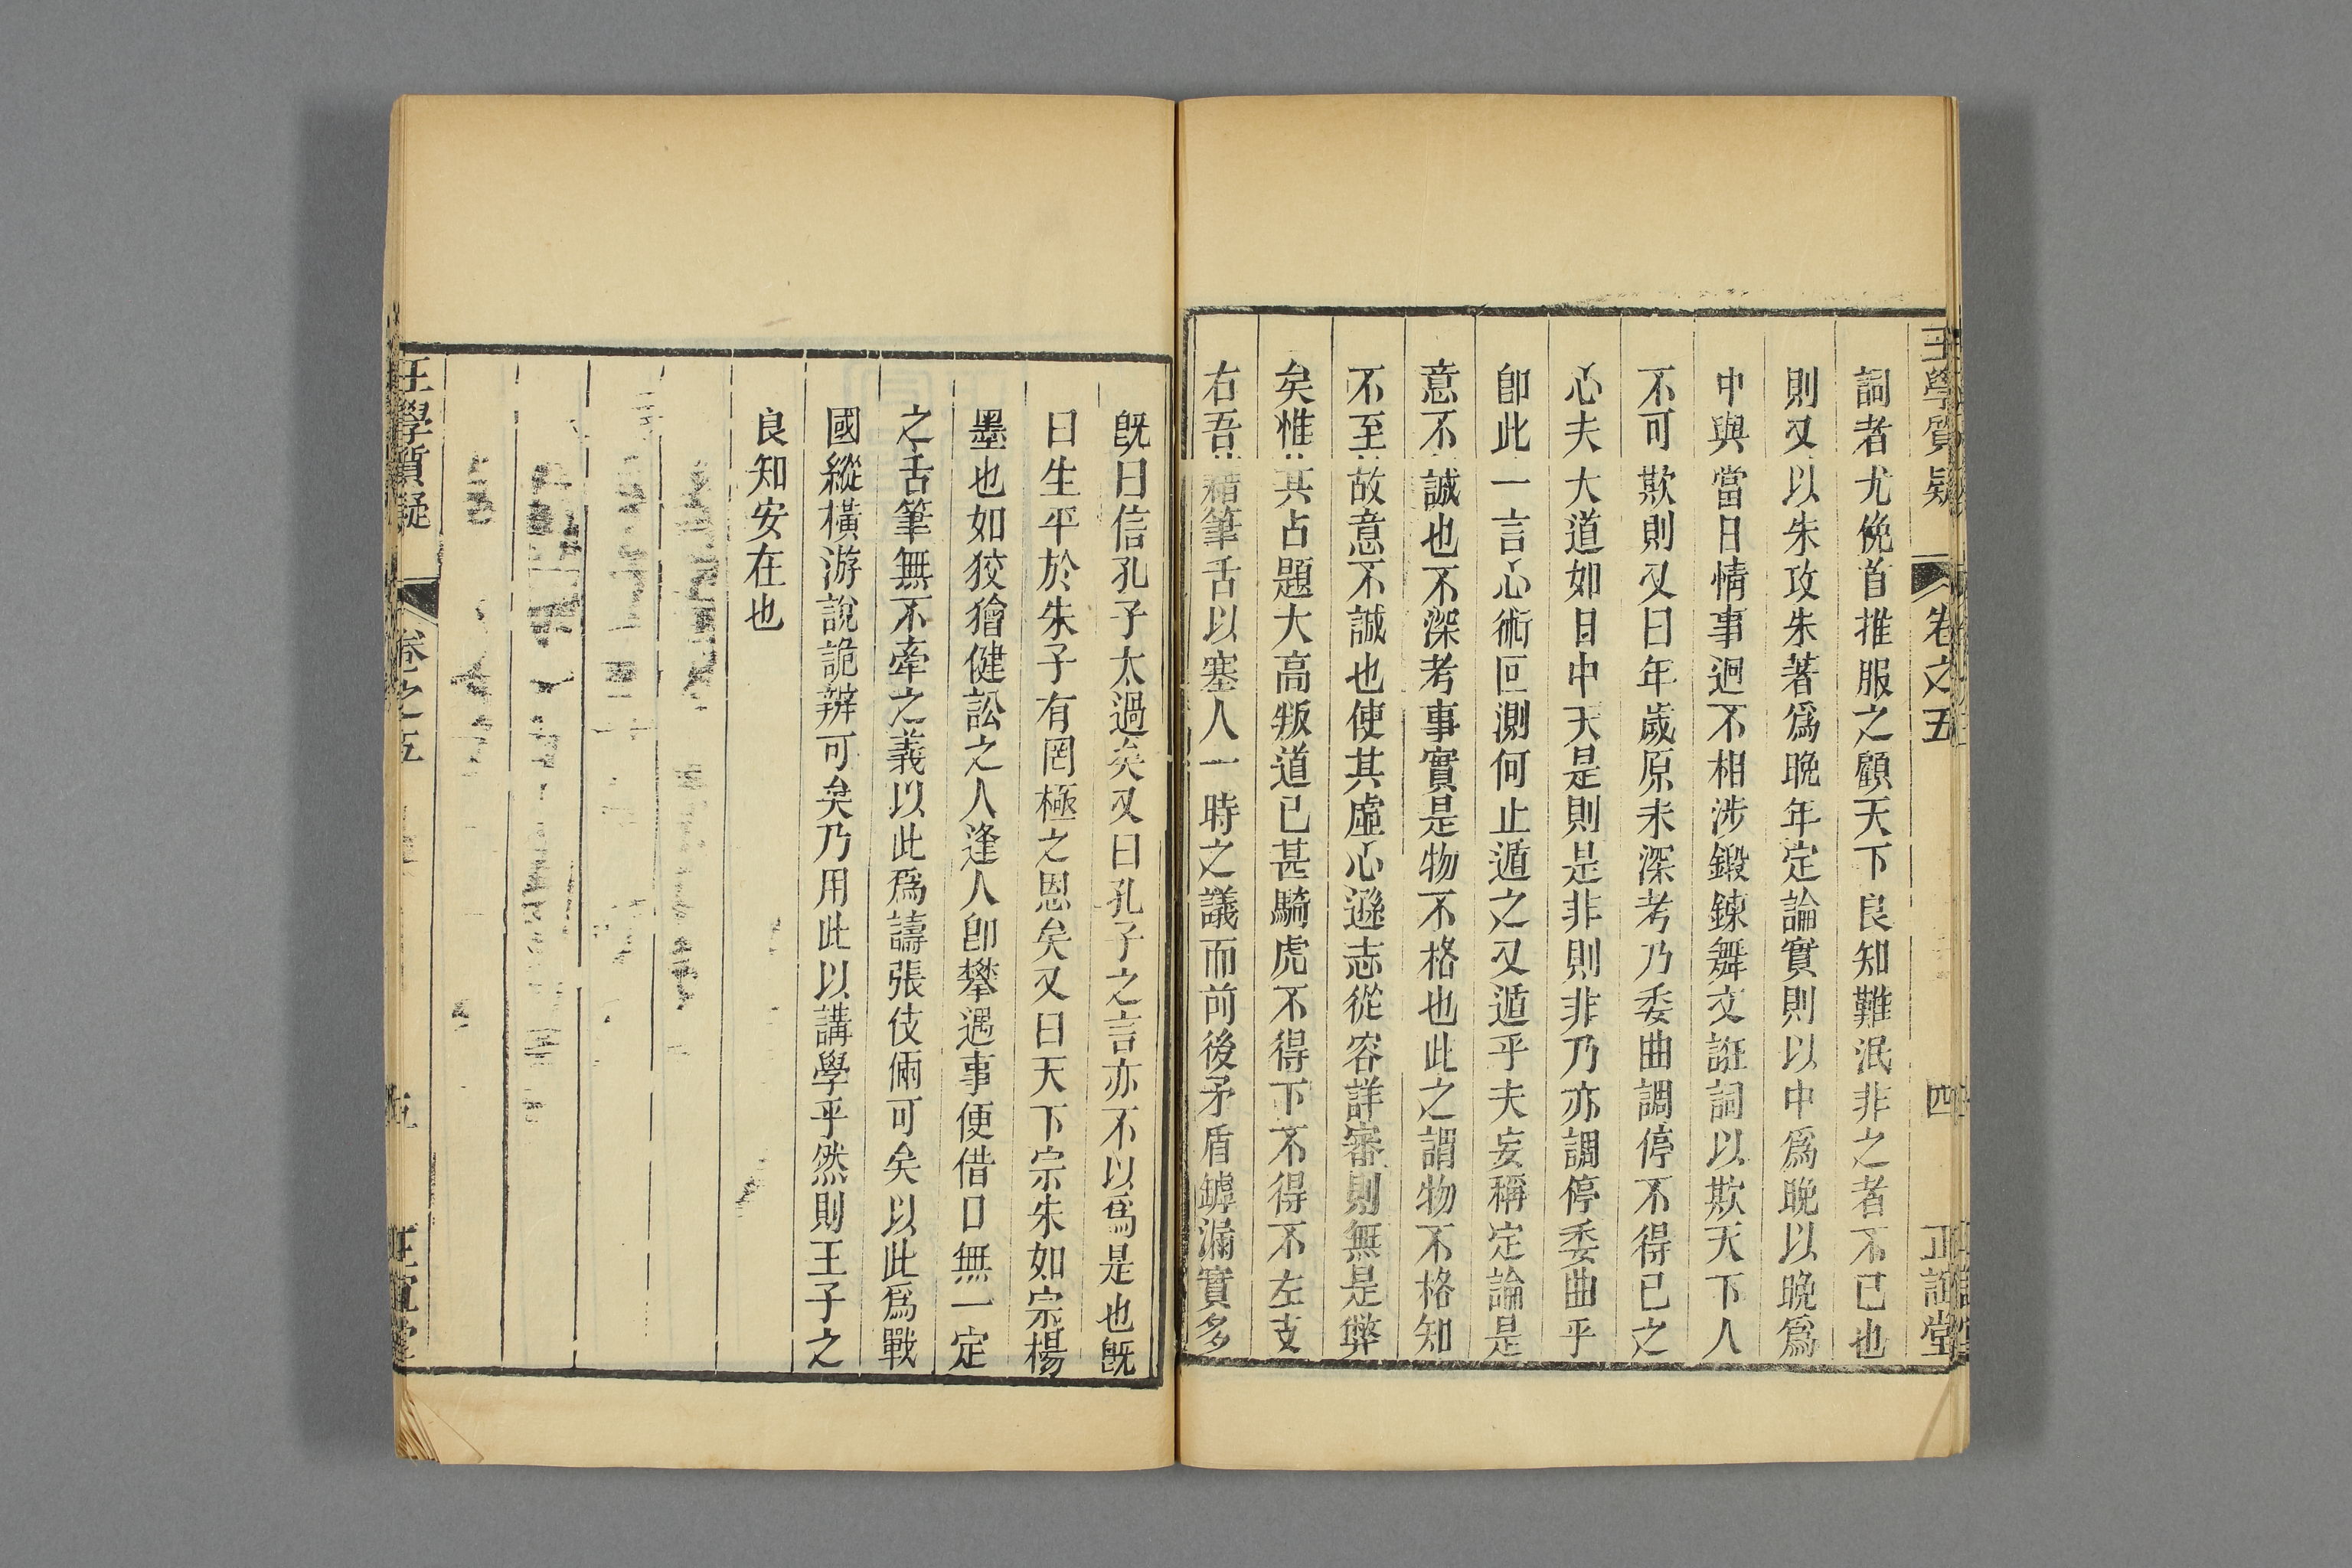 王學質疑 卷之五 四 正誼堂
詞者尤俛首推服之顧天下良知難泯非之者不已也
則又以朱攻朱著爲晩年定論實則以中爲晩以晩爲
中與當日情事逈不相涉鍛鍊舞文誑詞以欺天下人
不可欺則又曰年歲原未深考乃委曲調停不得已之
心夫大道如日中天是則是非則非乃亦調停委曲乎
卽此一言心術叵測何止遁之又遁乎夫妄稱定論是
意不誠也不深考事實是物不格也此之謂物不格知
不至故意不誠也使其虛心遜志從容詳審則無是弊
矣惟其占題大高叛道已甚騎虎不得下不得不左支
右吾藉筆舌以塞人一時之議而前後矛盾罅漏實多
旣曰信孔子太過矣又曰孔子之言亦不以爲是也旣
曰生平於朱子有罔極之恩矣又曰天下宗朱如宗楊
墨也如狡獪健訟之人逢人卽攀遇事便借口無一定
之舌筆無不牽之義以此爲譸張伎倆可矣以此爲戰
國縱橫游說詭辨可矣乃用此以講學乎然則王子之
良知安在也
王學質疑 卷之五 五 正誼堂